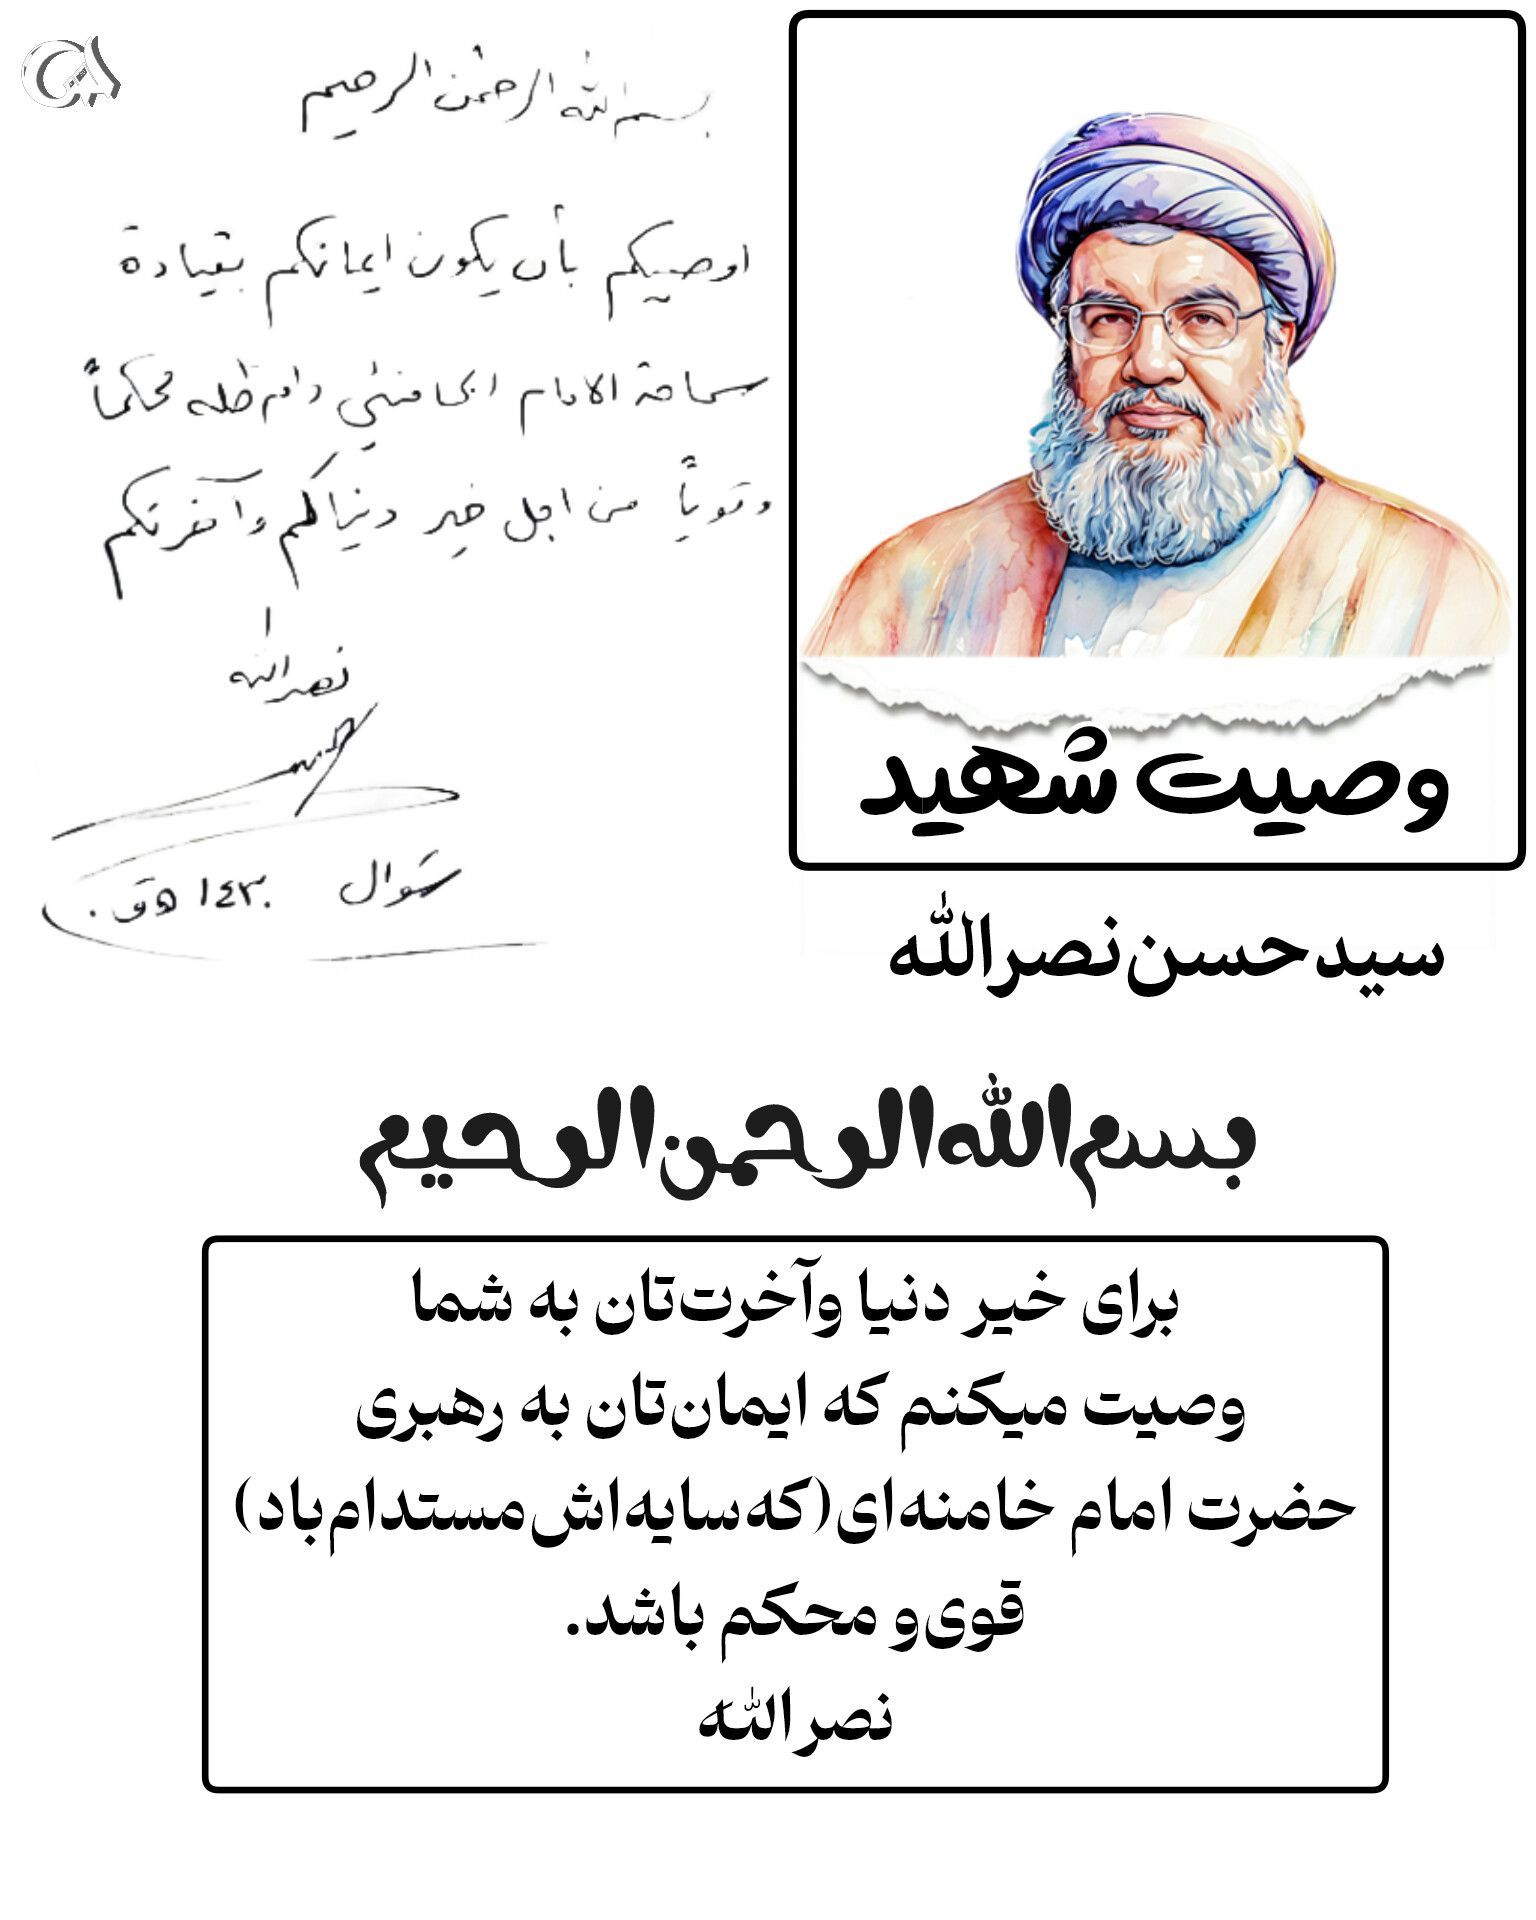 بسم الله الرحمن الرحیم
اوصیکم بأن یکون ایمانکم بقیادة
سماحة الامام الخامنئي دام ظله محکماً
وقویاً من اجل خیر دنیاکم وآخرتکم
نصر الله
شوال ١٤٣٠ ه‍ ق.
وصیت شهید
سید حسن نصرالله
بسم الله الرحمن الرحیم
برای خیر دنیا وآخرت‌تان به شما
وصیت میکنم که ایمان‌تان به رهبری
حضرت امام خامنه‌ای(که سایه‌اش مستدام باد)
قوی و محکم باشد.
نصرالله